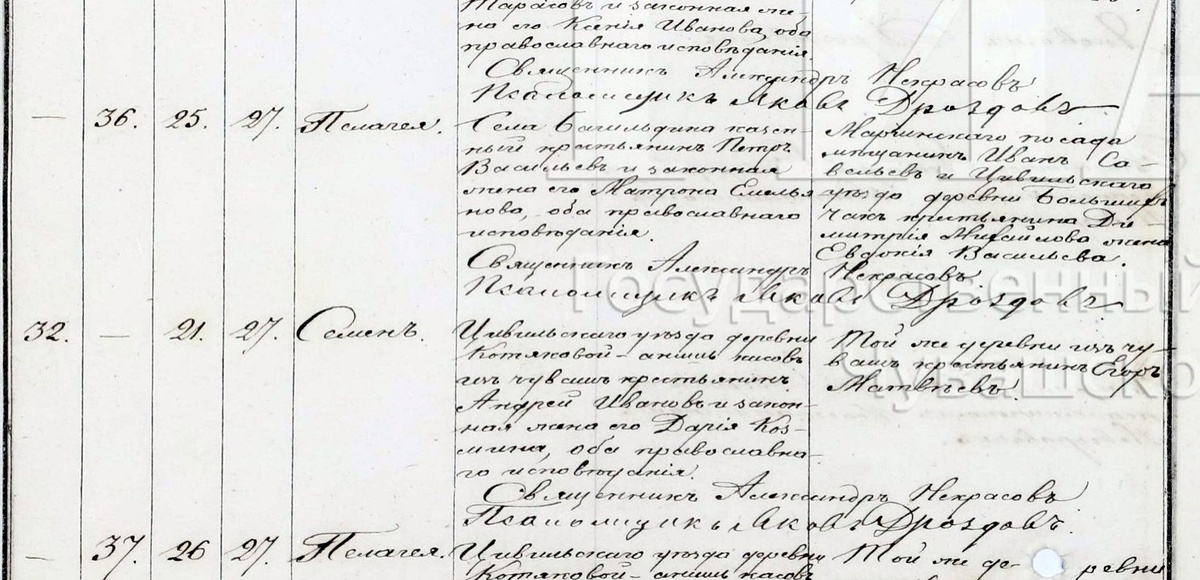 Тарасовъ и законная же-
на его Ксенія Иванова, оба
православнаго исповѣданія.
Священникъ Александръ Некрасовъ
Псаломщикъ Яковъ Дроздовъ
— 36. 25. 27. Пелагея.
Села Багильдина казен-
ный крестьянинъ Петръ
Васильевъ и законная
жена его Матрона Емелья
нова, оба православнаго
исповѣданія.
Маріинскаго посада
мѣщанинъ Иванъ Са-
вельевъ и Цивильскаго
уѣзда деревни
чакъ крестьянина Ди-
митрія Михайлова жена
Евдокія Васильева.
Священникъ Александръ Некрасовъ
Псаломщикъ Яковъ Дроздовъ
32. — 21. 27. Семенъ.
Цивильскаго уѣзда деревни
Котяковой
изъ чувашъ крестьянинъ
Андрей Ивановъ и закон-
ная жена его Дарія Коз-
мина, оба православна-
го исповѣданія.
Той же деревни изъ чу-
вашъ крестьянинъ Егоръ
Матвѣевъ.
Священникъ Александръ Некрасовъ
Псаломщикъ Яковъ Дроздовъ.
— 37. 26 27. Пелагея.
Цивильскаго уѣзда деревни
Котяковой
Той же де- ревни
Государственный
Чувашско